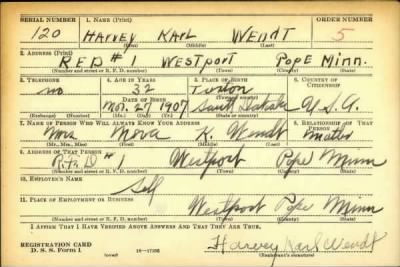 SERIAL NUMBER 1. NAME (Print) ORDER NUMBER
120 HARVEY KARL WENDT 5
(First) (Middle) (Last)
2. ADDRESS (Print)
RFD #1 WESTPORT POPE MINN.
(Number and street or R. F. D. number) (Town) (County) (State)
3. TELEPHONE 4. AGE IN YEARS 5. PLACE OF BIRTH 6. COUNTRY OF CITIZENSHIP
no 32
DATE OF BIRTH (Town or county)
Nov. 27 1907 South Dakota U.S.A.
(Exchange) (Number) (Mo.) (Day) (Yr.) (State or country)
7. NAME OF PERSON WHO WILL ALWAYS KNOW YOUR ADDRESS 8. RELATIONSHIP OF THAT PERSON
Mrs K. Wendt Mother
(Mr., Mrs., Miss) (First) (Middle) (Last)
9. ADDRESS OF THAT PERSON
R.F.D #1 Westport Pope Minn
(Number and street or R. F. D. number) (Town) (County) (State)
10. EMPLOYER'S NAME
Self
11. PLACE OF EMPLOYMENT OR BUSINESS
Westport Pope Minn
(Number and street or R. F. D. number) (Town) (County) (State)
I AFFIRM THAT I HAVE VERIFIED ABOVE ANSWERS AND THAT THEY ARE TRUE.
REGISTRATION CARD
D. S. S. Form 1 Harvey Karl Wendt
(over) 16—17105 (Registrant's signature)